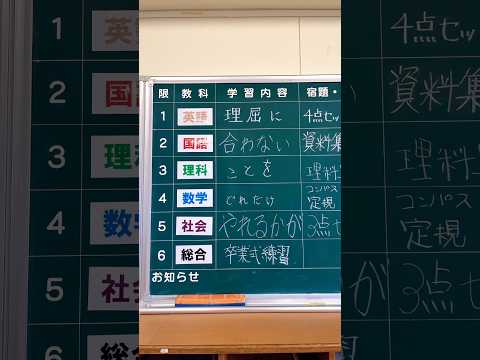 限 教科 学習内容 宿題・
1 英語 理屈に 4点セッ
2 国語 合わない 資料集
3 理科 ことを 理科
4 数学 どれだけ コンパス 定規
5 社会 やれるかが 3点セ
6 総合 卒業式練習
お知らせ
1 英語 4点セッ
2 国語 資料集
3 理科 理科
4 数学 コンパス 定規
5 社会 が 3点セ
6 総合